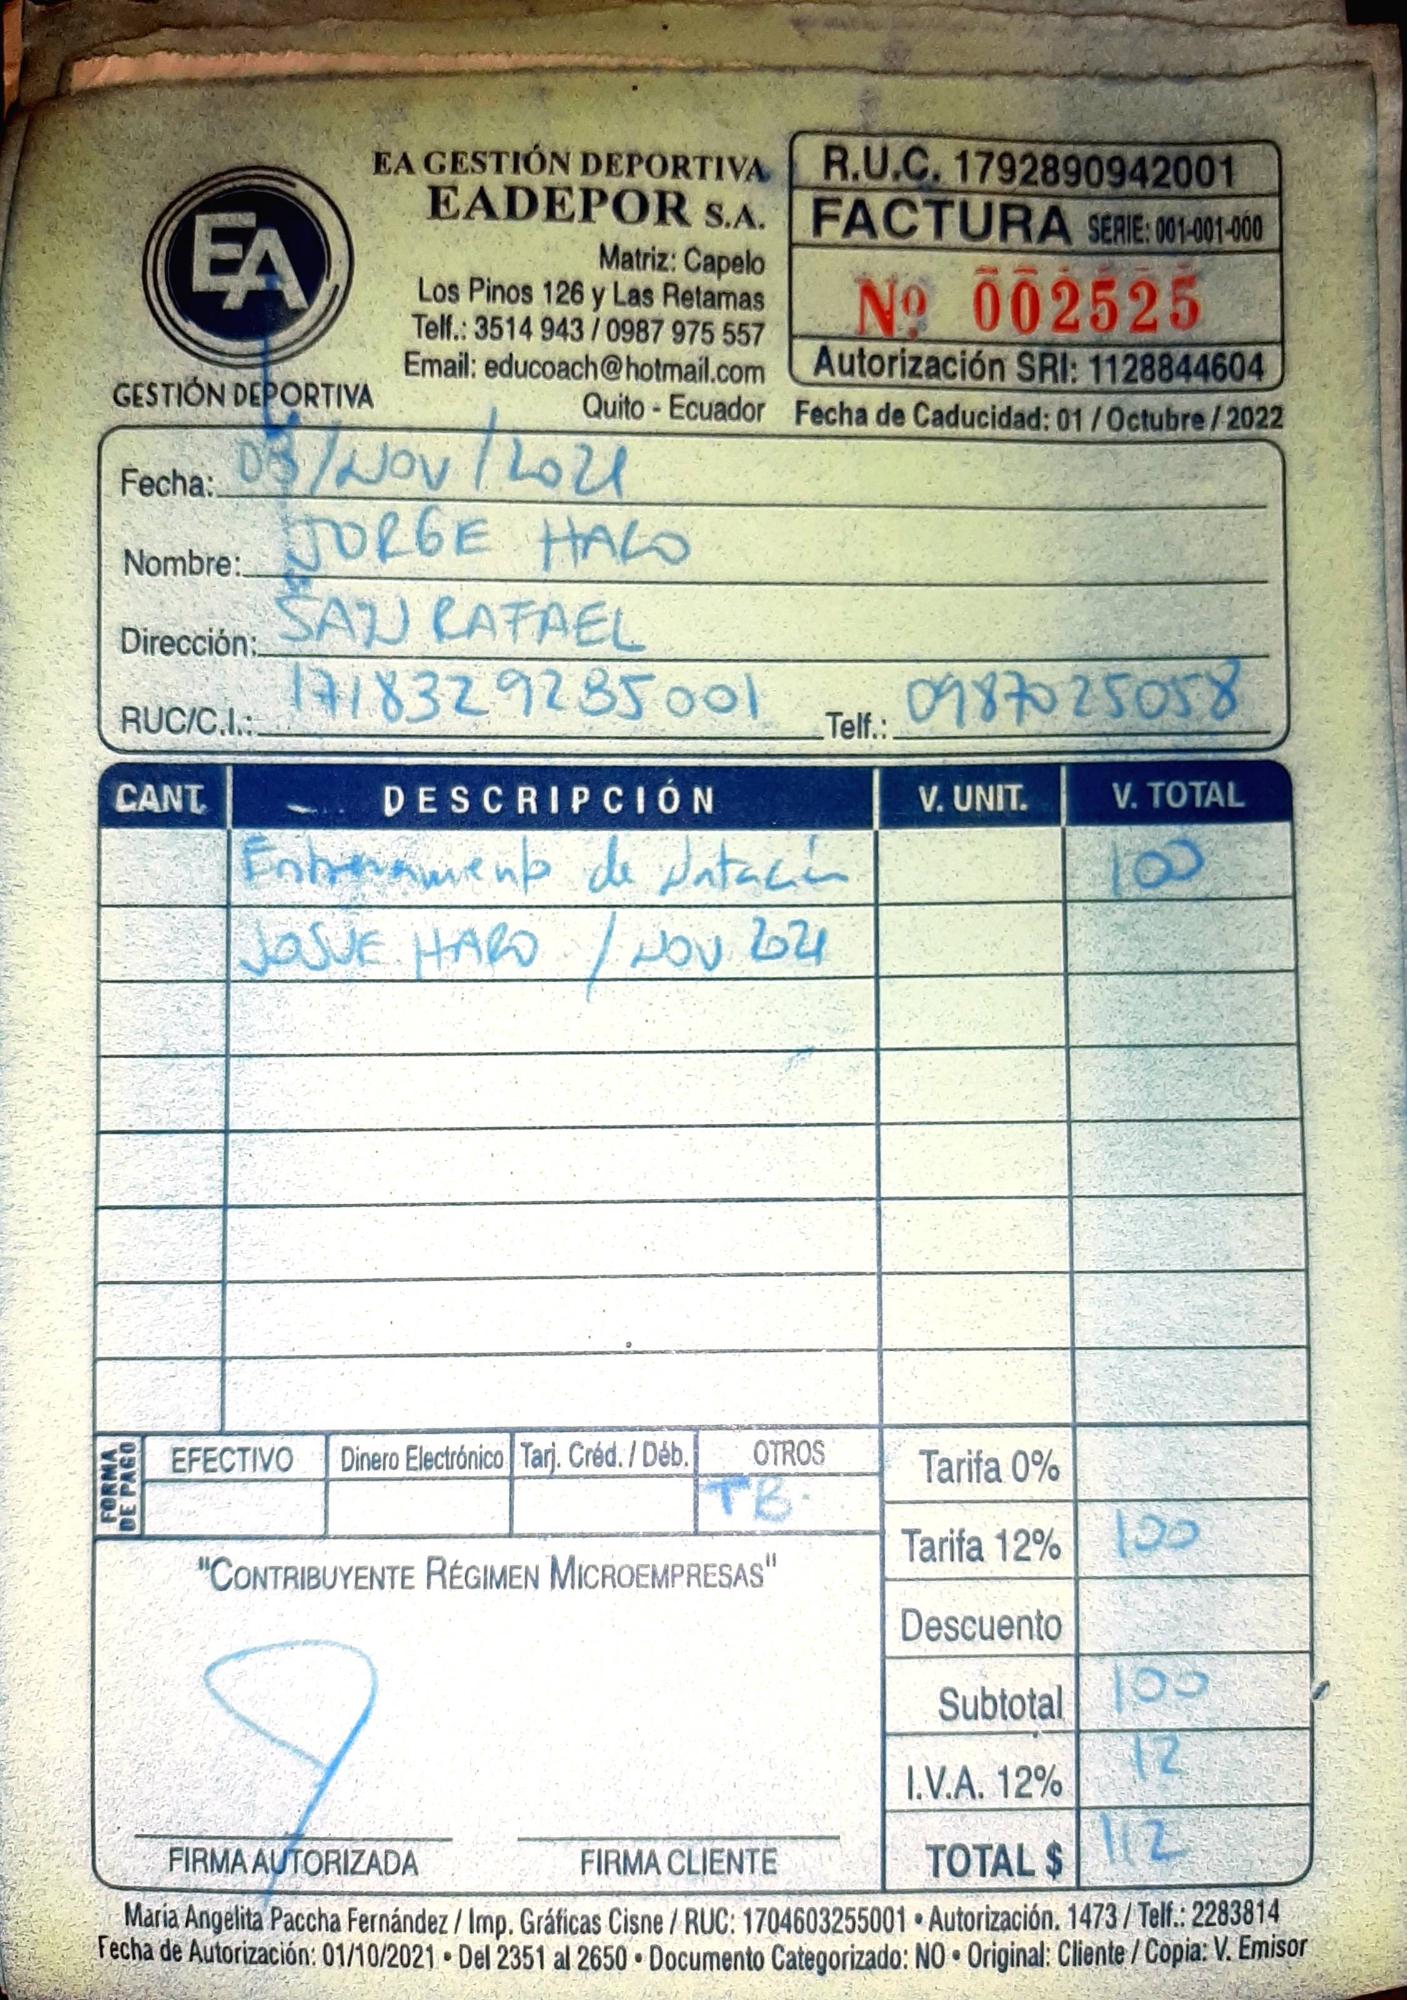 EA
GESTIÓN DEPORTIVA
EA GESTIÓN DEPORTIVA
EADEPOR S.A.
Matriz: Capelo
Los Pinos 126 y Las Retamas
Telf.: 3514 943 / 0987 975 557
Email: educoach@hotmail.com
Quito - Ecuador
R.U.C. 1792890942001
FACTURA SERIE: 001-001-000
Nº 002525
Autorización SRI: 1128844604
Fecha de Caducidad: 01 / Octubre / 2022
Fecha: 03/NOV/2021
Nombre: JORGE HARO
Dirección: SAN RAFAEL
RUC/C.I.: 1718329285001 Telf.: 0987025058
CANT. DESCRIPCIÓN V. UNIT. V. TOTAL
Entrenamiento de Natación 100
JOSUE HARO / NOV 2021
FORMA DE PAGO
EFECTIVO Dinero Electrónico Tarj. Créd. / Déb. OTROS
TB.
Tarifa 0%
Tarifa 12% 100
Descuento
Subtotal 100
I.V.A. 12% 12
TOTAL $ 112
"CONTRIBUYENTE RÉGIMEN MICROEMPRESAS"
FIRMA AUTORIZADA FIRMA CLIENTE
María Angélita Paccha Fernández / Imp. Gráficas Cisne / RUC: 1704603255001 • Autorización. 1473 / Telf.: 2283814
Fecha de Autorización: 01/10/2021 • Del 2351 al 2650 • Documento Categorizado: NO • Original: Cliente / Copia: V. Emisor